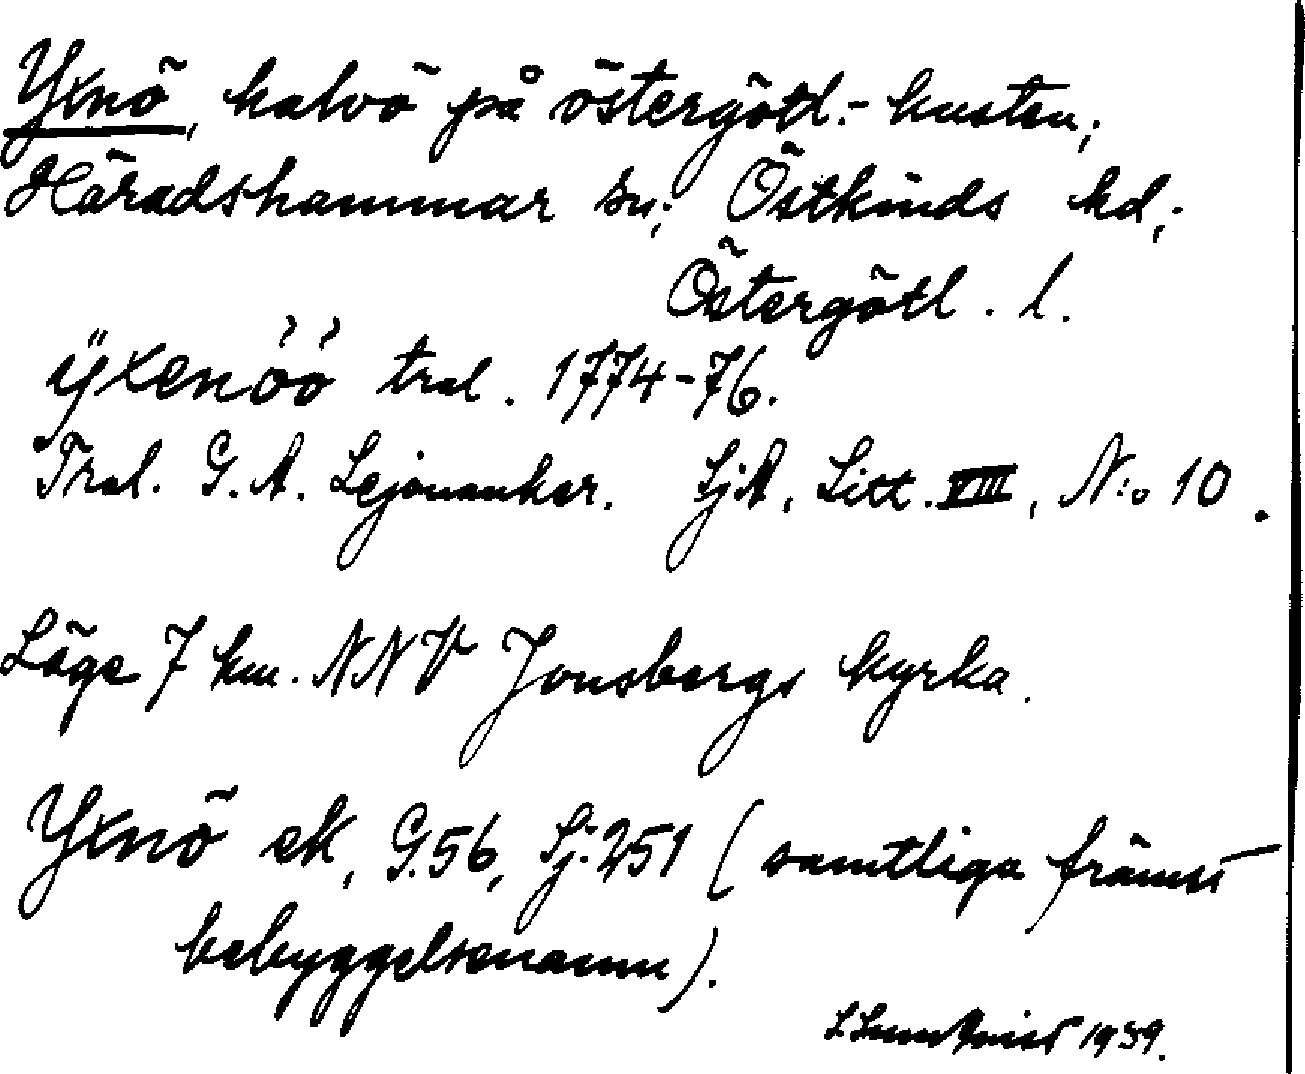 Yxnö, halvö på östergötl.-kusten;
Häradshammar sn; Östkinds hd;
Östergötl. l.
ÿxenöö tral. 1774-76.
Tral. G. A. Lejonanker. SjA, Litt. VIII, N:o 10.
Läge 7 km. NNV Jonsbergs kyrka.
Yxnö ek, G.56, Sj.251 (samtliga främst
bebyggelsenamn).
1939.